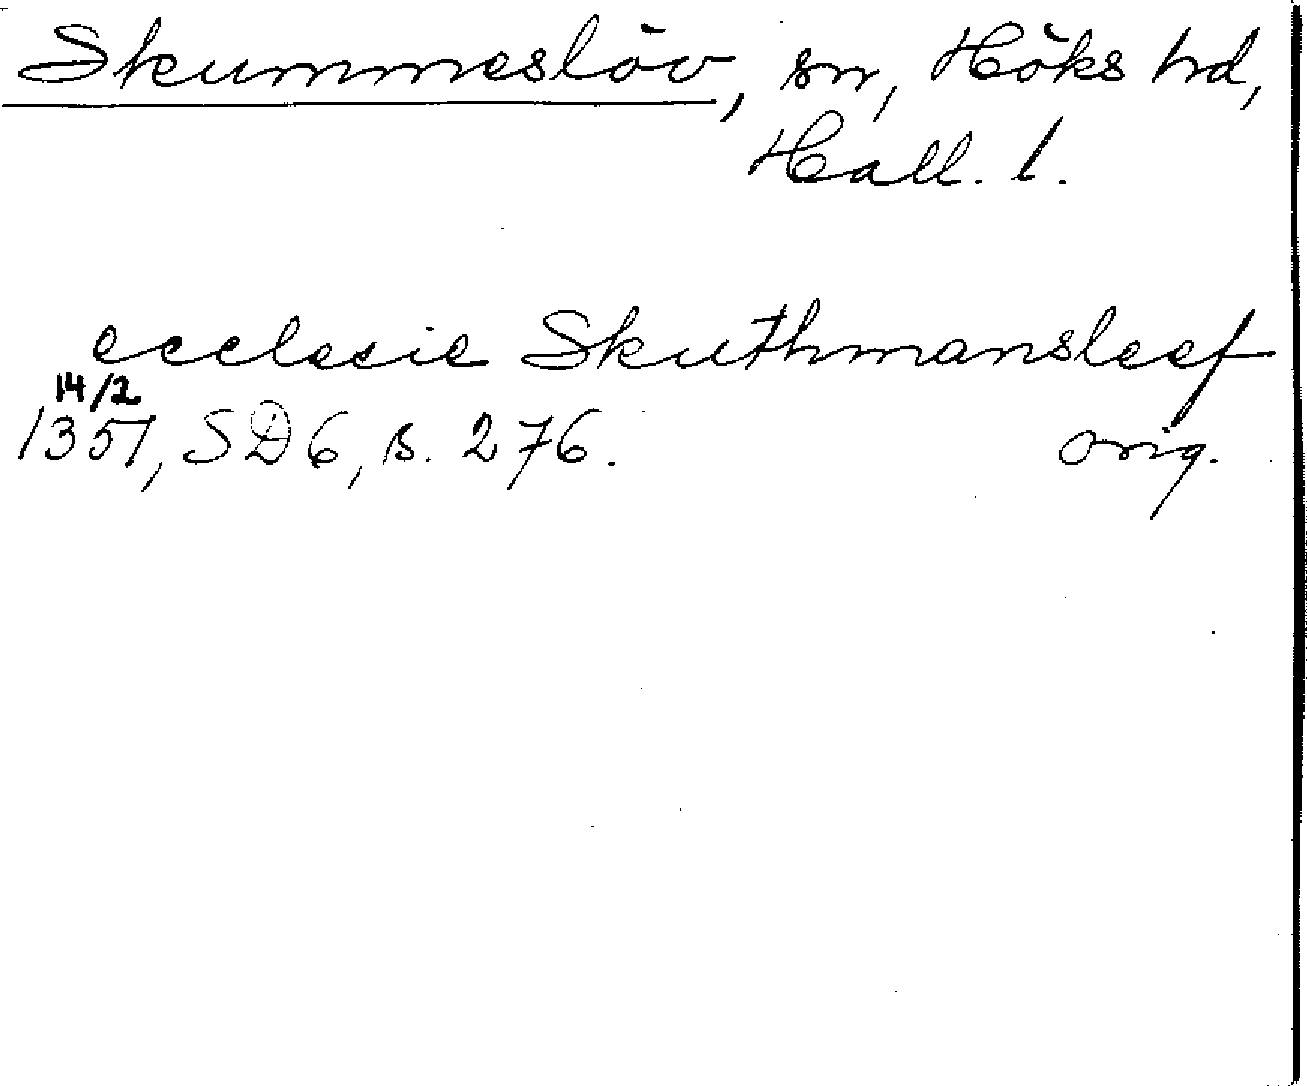 Skummeslöv, sn, Höks hd,
Hall. l.
ecclesie Skuthmansleef
14/2
1351, SD 6, s. 276. orig.